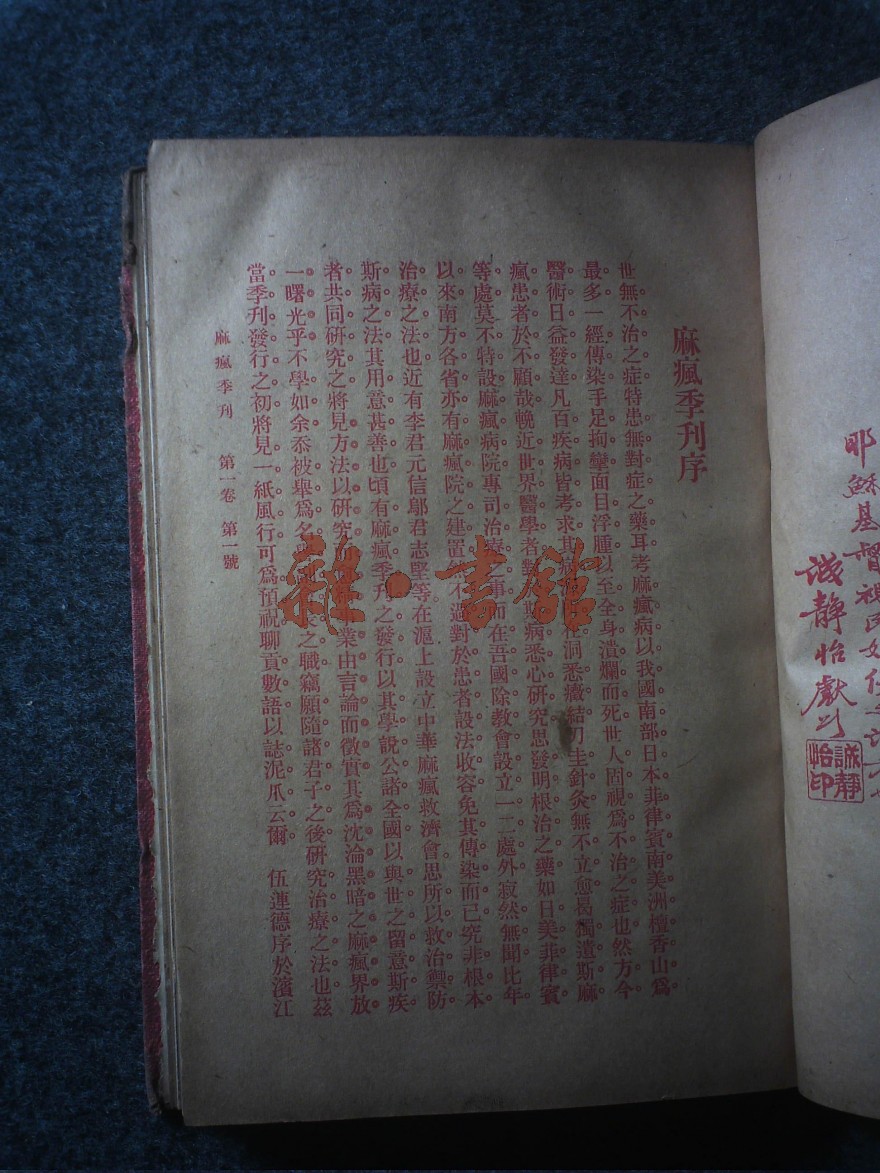 耶穌基督視民
誠靜怡獻
誠靜怡印
麻瘋季刊序
世無不治之症特患無對症之藥耳考麻瘋病以我國南部日本菲律賓南美洲檀香山爲
最多一經傳染手足拘攣面目浮腫以至全身潰爛而死世人固視爲不治之症也然方今
醫術日益發達凡百疾病皆考求其病在洞悉癥結刀圭針灸無不立愈曷獨遺斯麻
瘋患者於不顧哉輓近世界醫學者對斯病悉心硏究思發明根治之藥如日美菲律賓
等處莫不特設麻瘋病院專司治療之事而在吾國除教會設立一二處外寂然無聞比年
以來南方各省亦有麻瘋院之建置然不過對於患者設法收容免其傳染而已究非根本
治療之法也近有李君元信鄔君志堅等在滬上設立中華麻瘋救濟會思所以救治禦防
斯病之法其用意甚善也頃有麻瘋季刊之發行以其學說公諸全國以與世之留意斯疾
者共同硏究之將見方法以硏究而業由言論而徵實其爲沈淪黑暗之麻瘋界放
一曙光乎不學如余忝被舉爲名之職竊願隨諸君子之後硏究治療之法也茲
當季刊發行之初將見一紙風行可爲預祝聊貢數語以誌泥爪云爾 伍連德序於濱江
麻瘋季刊 第一卷 第一號
雜·書館